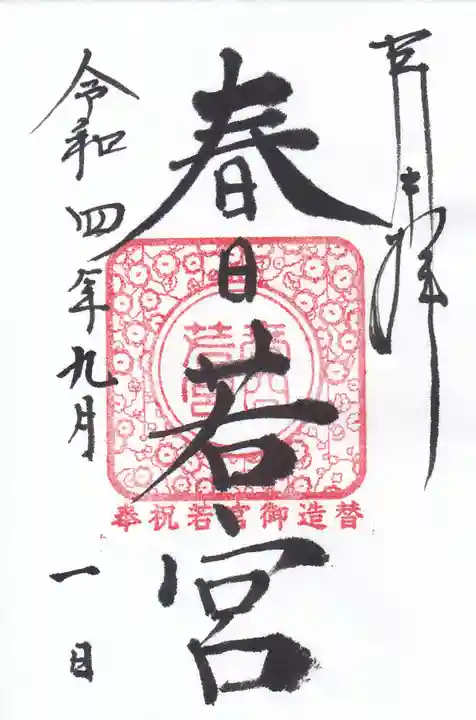 奉拝
春日若宮
春日
若宮
奉祝若宮御造替
令和四年九月一日